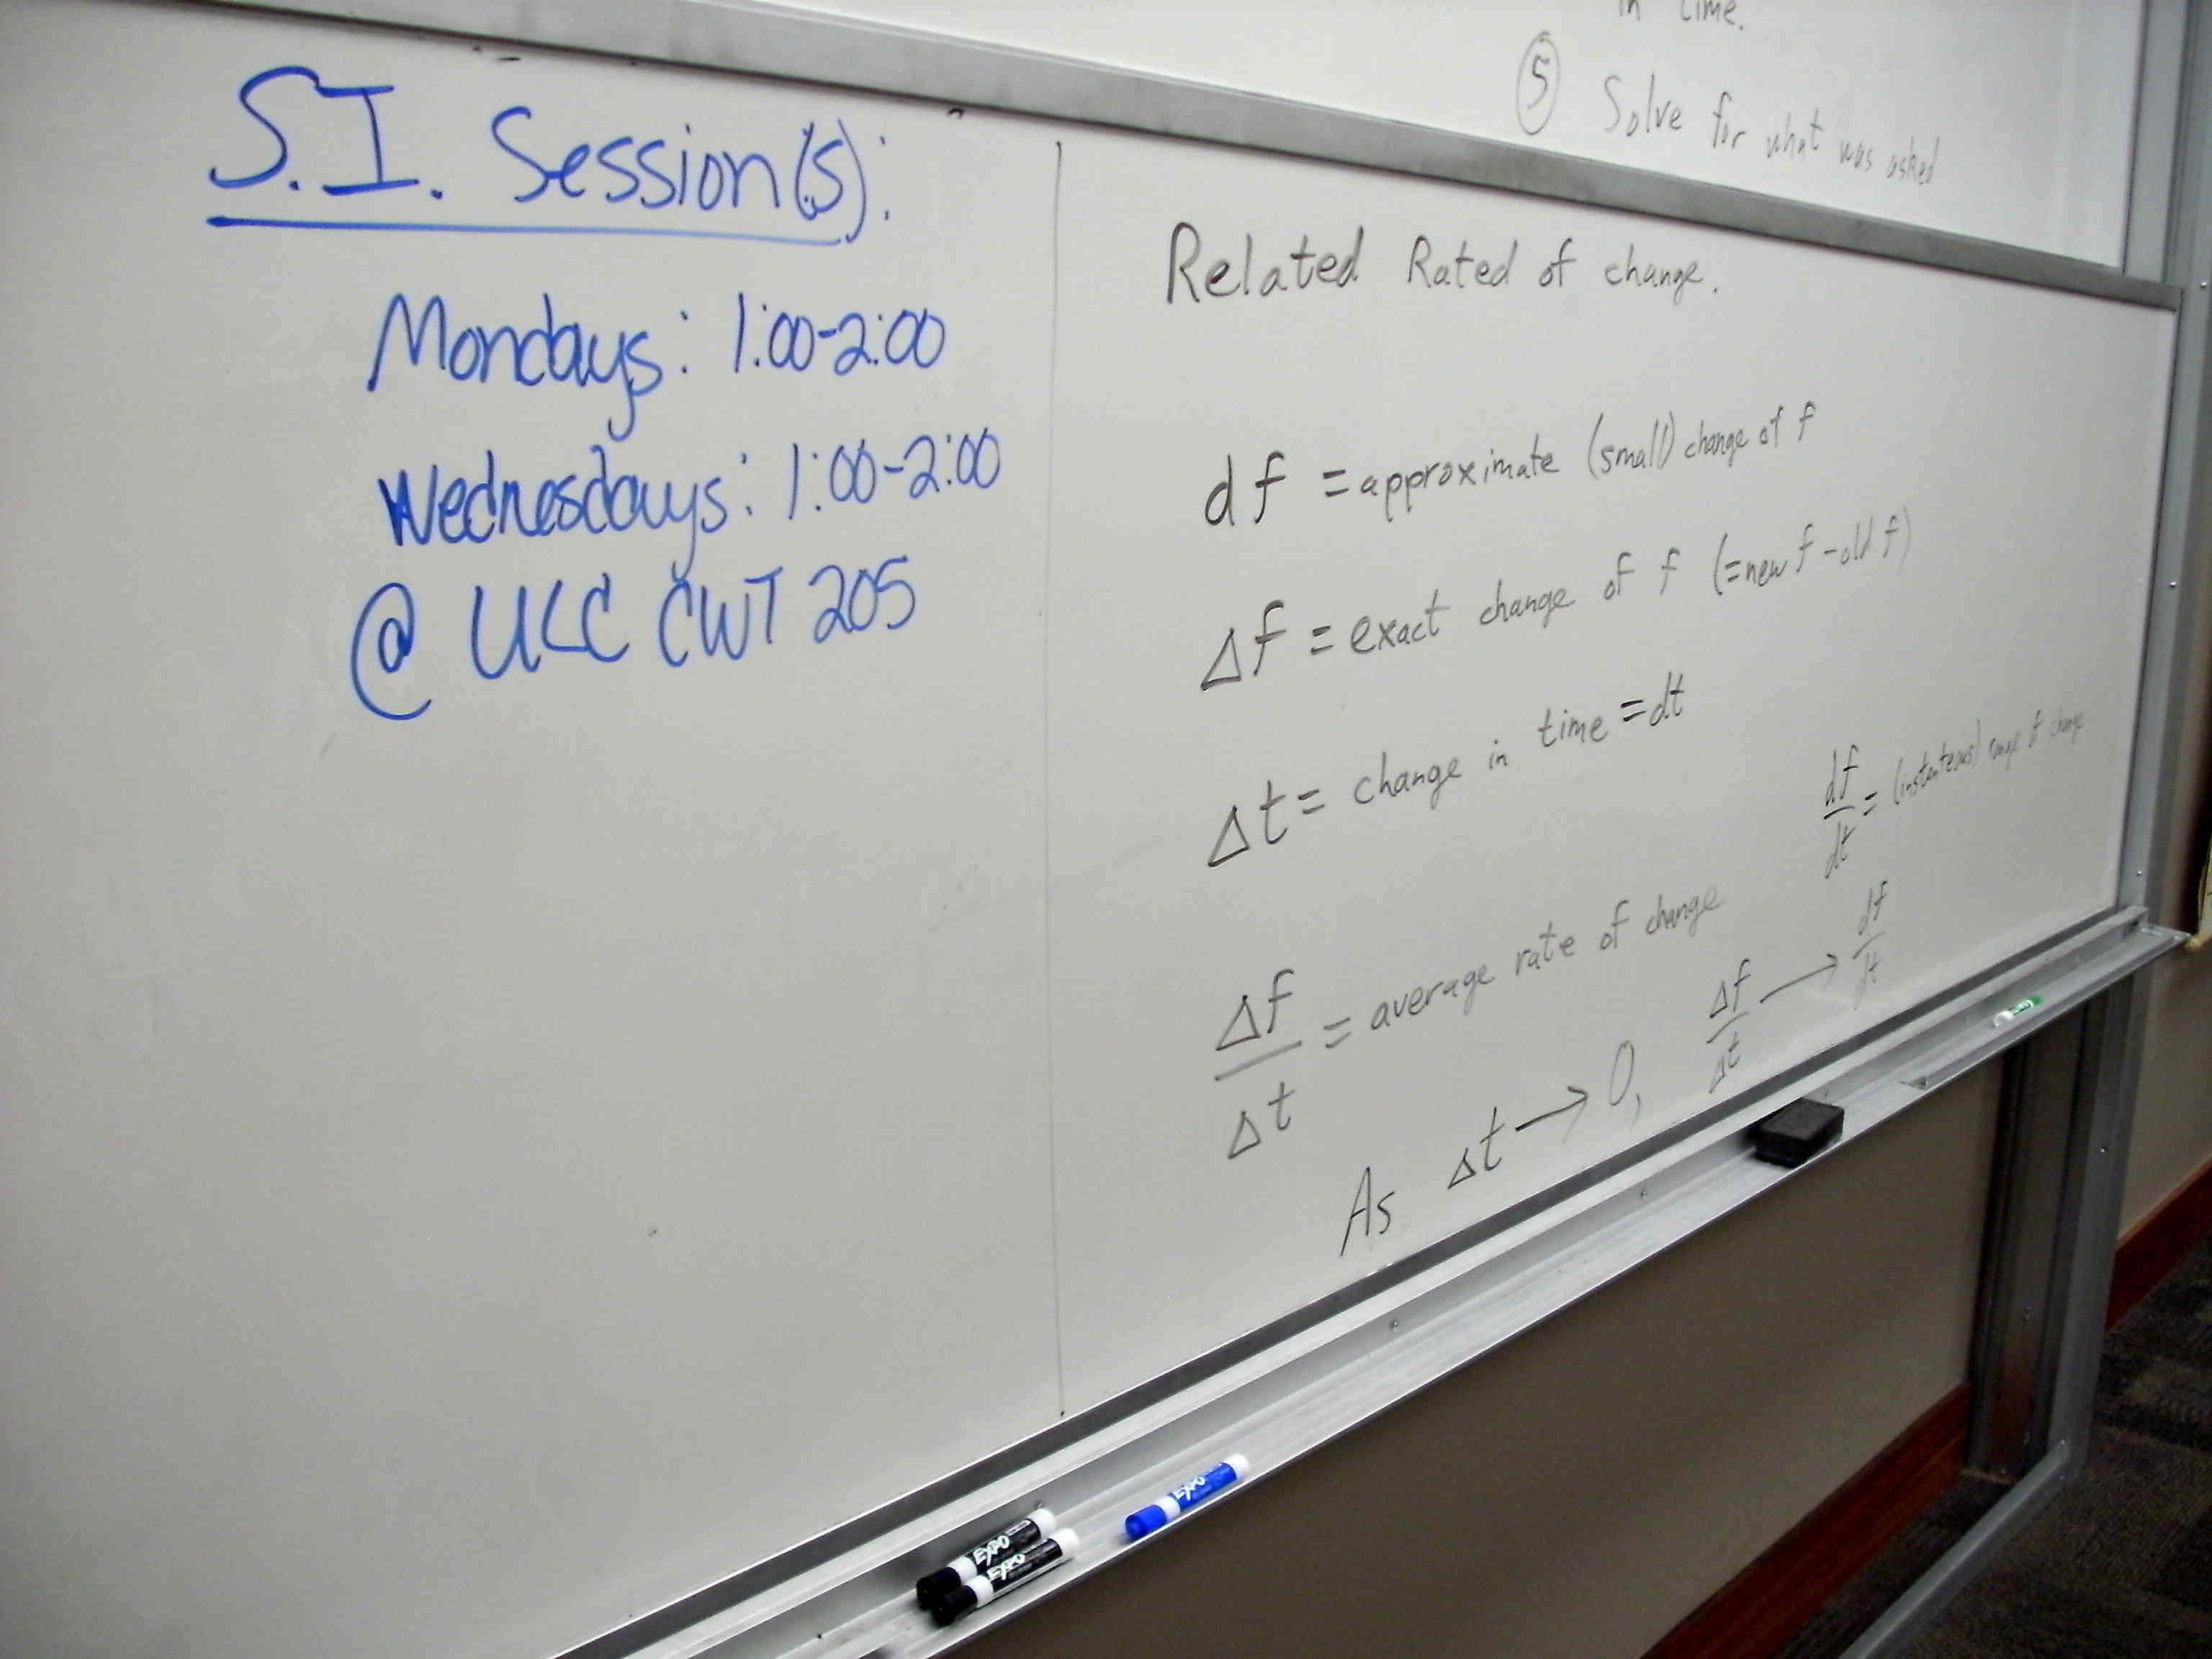 S.I. Session(s):
Mondays: 1:00-2:00
Wednesdays: 1:00-2:00
@ ULC CWT 205
in time.
⑤ Solve for what was asked
Related Rated of change.
df = approximate (small) change of f
Δf = exact change of f (=new f - old f)
Δt = change in time = dt
df/dt = (instanteous) range of change
Δf/Δt = average rate of change
As Δt → 0, Δf/Δt → df/dt
EXPO
EXPO
EXPO